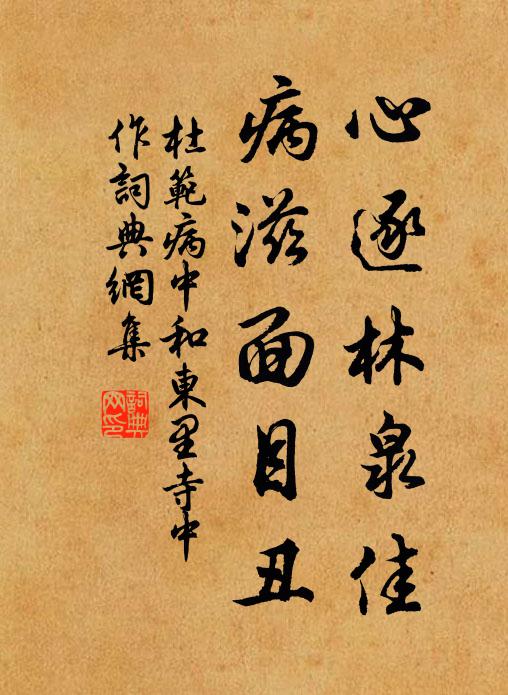 心逐林泉佳
病滋面目丑
杜範病中和東里寺中
作詞典網集
詞典
网印